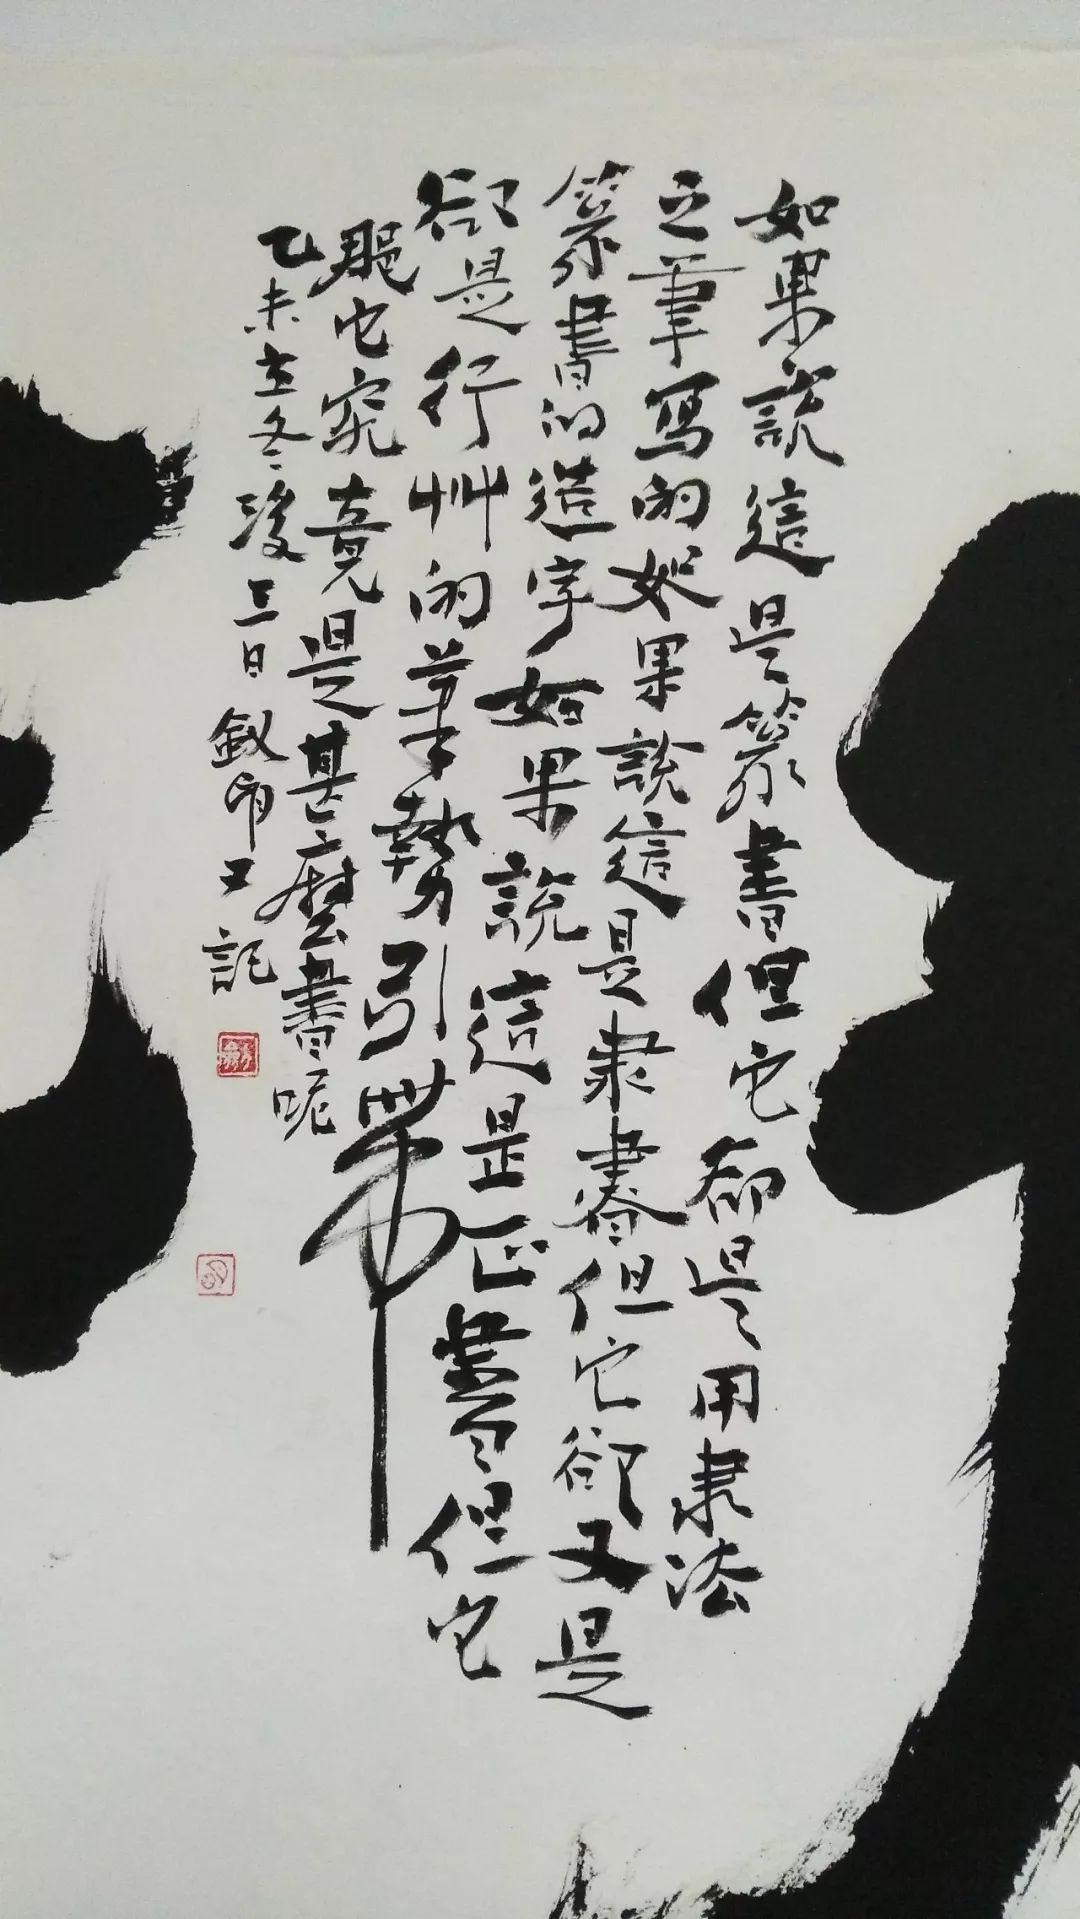 如果說這是篆書但它卻是用隶法
之筆寫的如果說這是隶書但它卻又是
篆書的造字如果說這是正書但它
卻是行艸的筆勢引帶
那它究竟是甚麼書呢
乙未立冬後三日 又記